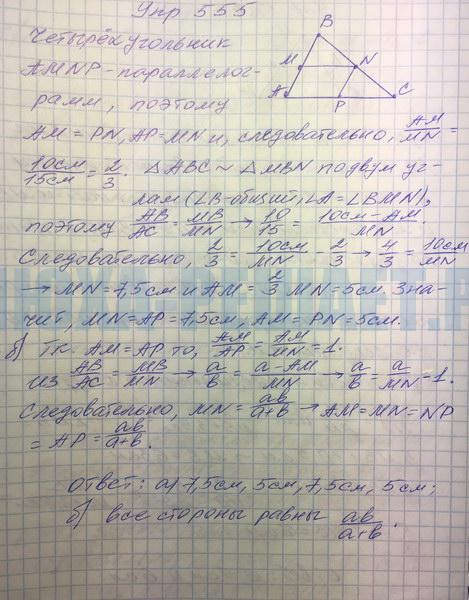 Упр 555
Четырёхугольник
AMNP - параллелог-
рамм, поэтому
AM = PN, AP = MN и, следовательно, AM/MN =
10см/15см = 2/3. △ABC ~ △MBN по двум уг-
лам (∠B-общий, ∠A = ∠BMN),
поэтому AB/AC = MB/MN → 10/15 = 10см - AM/MN.
Следовательно, 2/3 = 10см/MN - 2/3 → 4/3 = 10см/MN
→ MN = 7,5см и AM = 2/3 MN = 5см. Зна-
чит, MN = AP = 7,5см, AM = PN = 5см.
б) Тк. AM = AP то, AM/AP = AM/MN = 1.
Из AB/AC = MB/MN → a/b = a-AM/MN → a/b = a/MN - 1.
Следовательно, MN = ab/a+b → AM = MN = NP
= AP = ab/a+b.
ответ: а) 7,5см, 5см, 7,5см, 5см;
б) все стороны равны ab/a+b.
B
M
N
A
P
C